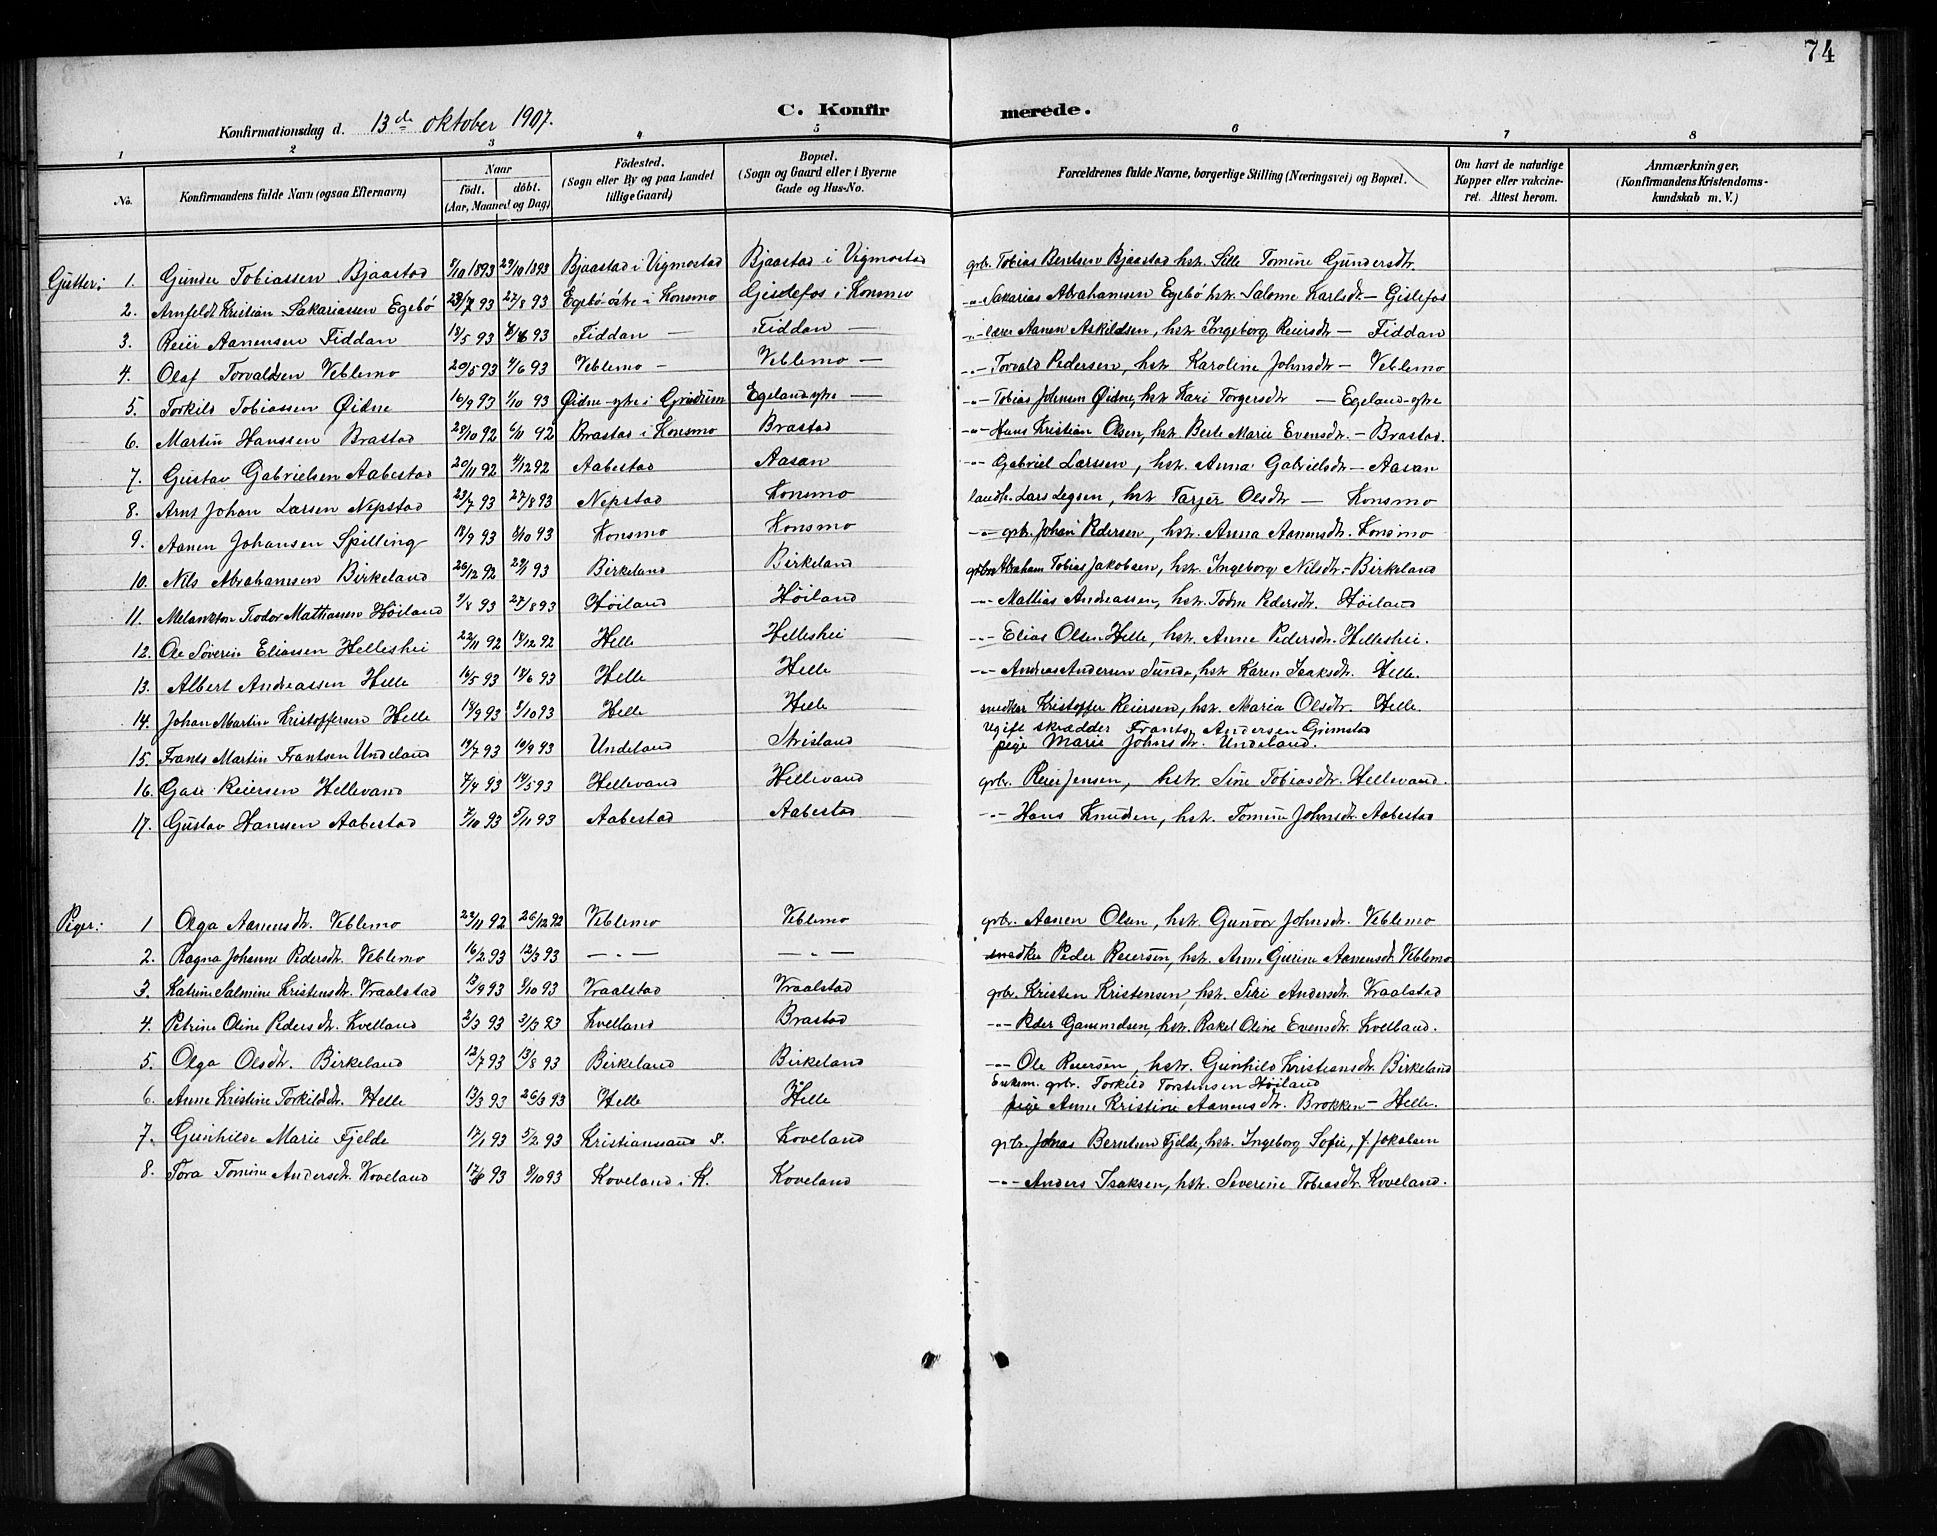 74
Konfirmationsdag d. 13de oktober 1907.
C. Konfirmerede.
1 2 3 4 5 6 7 8
No. Konfirmandens fulde Navn (ogsaa Efternavn) Naar født. døbt. (Aar, Maaned og Dag) Fødested. (Sogn eller By og paa Landet tillige Gaard) Bopæl. (Sogn og Gaard eller i Byerne Gade og Hus-No. Forældrenes fulde Navne, borgerlige Stilling (Næringsvei) og Bopæl. Om havt de naturlige Kopper eller vakcineret. Attest herom. Anmærkninger, (Konfirmandens Kristendomskundskab m. V.)
Gutter: 1. Gunder Tobiassen Bjaastad 5/10 1893 29/10 1893 Bjaastad i Vigmostad Bjaastad i Vigmostad gbr. Tobias Berntsen Bjaastad hstr. Sille Tomine Gundersdtr.
2. Arnfeldt Kristian Sakariassen Egebø 23/7 93 27/8 93 Egebø østre i Konsmo Gislefos i Konsmo -"- Sakarias Abrahamsen Egebø hstr. Salome Karlsdtr - Gislefos
3. Reier Aanensen Fiddan 18/5 93 93 Fiddan — Fiddan — -"- lærer Aanen Askildsen, hstr. Ingeborg Reiersdtr — Fiddan
4. Olaf Torvaldsen Veblemo 20/5 93 4/6 93 Veblemo — Veblemo — -"- Torvald Pedersen, hstr. Karoline Johnsdtr — Veblemo
5. Torkild Tobiassen Øidne 16/9 93 1/10 93 Øidne-ytre i Grindum Egeland-ytre — -"- Tobias Johnsen Øidne, hstr. Kari Torgersdtr — Egeland-ytre
6. Martin Hanssen Brastad 28/10 92 6/11 92 Brastad i Konsmo Brastad -"- Hans Kristian Olsen, hstr. Berte Marie Evensdtr. - Brastad.
7. Gustav Gabrielsen Aabestad 20/11 92 4/12 92 Aabestad Aasan -"- Gabriel Larssen, hstr. Anna Gabrielsdtr — Aasan
8. Arnt Johan Larsen Nepstad 23/7 93 27/8 93 Nepstad Konsmo landh. Lars Legsen, hstr. Tarjer Olsdtr — Konsmo
9. Aanen Johansen Spilling 12/9 93 8/10 93 Konsmo Konsmo -"- gbr. Johan Pedersen, hstr. Anna Aanensdtr. Konsmo
10. Nils Abrahamsen Birkeland 26/12 92 22/1 93 Birkeland Birkeland gbr. Abraham Tobias Jakobsen, hstr. Ingeborg Nilsdtr. - Birkeland
11. Melankton Teodor Mathiasen Høiland 7/8 93 27/8 93 Høiland Høiland -"- Mathias Andreassen, hstr. Pedersdtr. Høiland
12. Ole Severin Eliassen Helleshei 22/11 92 18/12 92 Helle Helleshei -"- Elias Olsen Helle, hstr. Anne Pedersdtr. Helleshei.
13. Albert Andreassen Helle 14/5 93 18/6 93 Helle Helle -"- Andreas Andersen Sunde, hstr. Karen Isaksdtr. Helle.
14. Johan Martin Kristoffersen Helle 18/9 93 8/10 93 Helle Helle snedker Kristoffer Reiersen, hstr. Maria Olsdtr. Helle.
15. Frants Martin Frantsen Undeland 19/7 93 10/9 93 Undeland Strisland Ugift skrædder Frants Andersen Grimstad
pige Marie Johnsdtr. Undeland.
16. Gase Reiersen Hellevand 7/4 93 14/5 93 Hellevand Hellevand gbr. Reier Jensen, hstr. Sine Tobiasdtr. Hellevand.
17. Gustav Hanssen Aabestad 7/10 93 5/11 93 Aabestad Aabestad -"- Hans Knudsen, hstr. Tomine Johnsdtr. Aabestad
Piger: 1 Olga Aanensdtr. Veblemo 22/11 92 26/12 92 Veblemo Veblemo gbr. Aanen Olsen, hstr. Gunvor Johnsdtr. Veblemo
2. Ragna Johanne Pedersdtr. Veblemo 16/2 93 12/3 93 — " — — " — snedker Peder Reiersen, hstr. Anne Gurine Aanensdtr. Veblemo
3. Katrine Salmine Kristensdtr. Vraalstad 13/9 93 8/10 93 Vraalstad Vraalstad gbr. Kristen Kristensen, hstr. Siri Andersdtr. Vraalstad
4. Petrine Oline Pedersdtr. Kvelland 2/3 93 Kvelland Brastad -"- Peder Gammelsen, hstr. Rakel Oline Evensdtr. Kvelland.
5. Olga Olsdtr. Birkeland 12/7 93 13/8 93 Birkeland Birkeland -"- Ole Reiersen, hstr. Gunhild Kristiansdtr. Birkeland
6. Anne Kristine Torkildsdtr. Helle 13/3 93 26/3 93 Helle Helle Enkem. gbr. Torkild Torstensen Høiland
pige Anne Kristine Aanensdtr. Brokken - Helle.
7. Gunhilde Marie Fjelde 12/1 93 5/2 93 Kristianssand S. Koveland gbr. Jonas Berntsen Fjelde, hstr. Ingeborg Sofie, f. Jakobsen
8. Tora Tomine Andersdtr. Koveland 93 8/10 93 Koveland i K. Koveland -"- Anders Isaksen, hstr. Severine Tobiasdtr. Koveland.